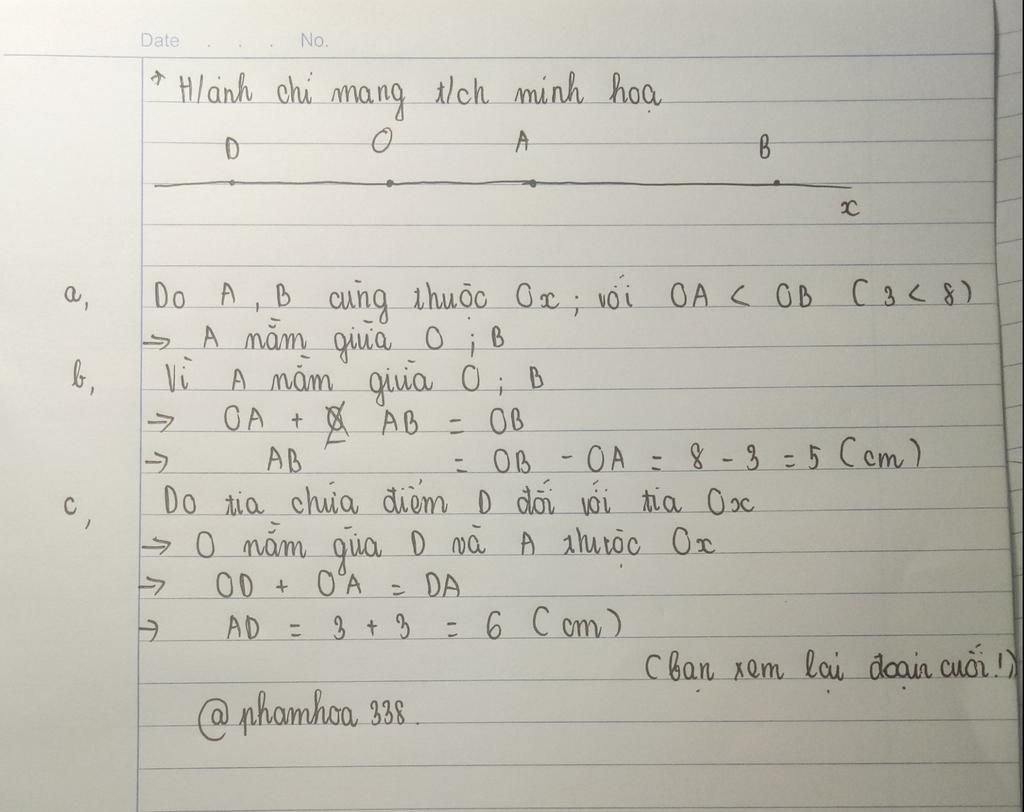 Date . . . No.
* H/ảnh chỉ mang t/ch minh hoạ
D O A B
x
a, Do A, B cùng thuộc Ox; với OA < OB (3 < 8)
→ A nằm giữa O; B
b, Vì A nằm giữa O; B
→ OA + AB = OB
→ AB = OB - OA = 8 - 3 = 5 (cm)
c, Do tia chứa điểm D đối với tia Ox
→ O nằm gữa D và A thuộc Ox
→ OD + OA = DA
→ AD = 3 + 3 = 6 (cm)
(bạn xem lại đoạn cuối!)
@phamhoa338.